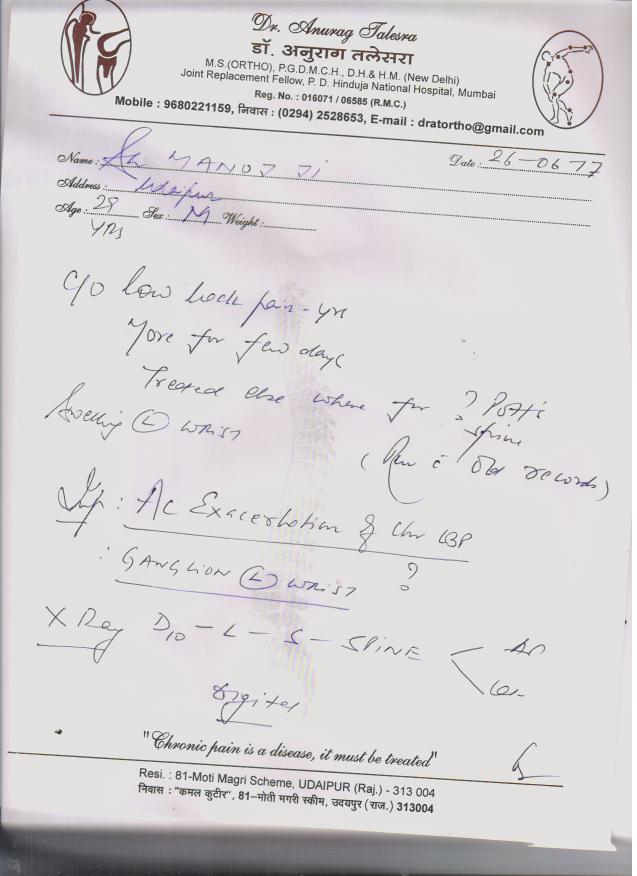 Dr. Anurag Talesra
डॉ. अनुराग तलेसरा
M.S.(ORTHO), P.G.D.M.C.H., D.H.& H.M. (New Delhi)
Joint Replacement Fellow, P. D. Hinduja National Hospital, Mumbai
Reg. No. : 016071 / 06585 (R.M.C.)
Mobile : 9680221159, निवास : (0294) 2528653, E-mail : dratortho@gmail.com
Name : MANOJ JI Date : 26-06-17
Address : Udaipur
Age : 29 Sex : M Weight :
yrs
C/O low back pain - yrs
More for few days
Treated else where for ? Pott's
spine
Swelling (L) WRIST
(Rev c Old records)
Imp : Ac Exacerbation of Chr LBP
: GANGLION (L) WRIST ?
X Ray D10 - L - S - SPINE < AP
Lat
Digital
"Chronic pain is a disease, it must be treated"
Resi. : 81-Moti Magri Scheme, UDAIPUR (Raj.) - 313 004
निवास : "कमल कुटीर", 81-मोती मगरी स्कीम, उदयपुर (राज.) 313004